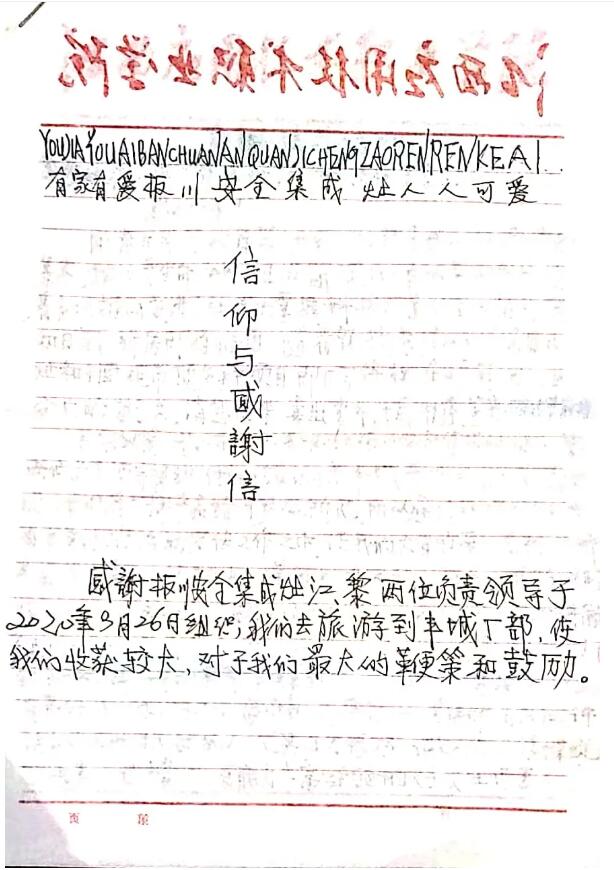 江西应用技术职业学院
YOUJIAYOUAIBANCHUANANQUANJICHENGZAORENRENKEAI
有家有爱板川安全集成灶人人可爱
信
仰
与
感
謝
信
感謝板川安全集成灶江、黎两位负责领导于
2020年9月26日组织,我们去旅游到丰城厂部,使
我们收获较大,对于我们最大的鞭策和鼓励。
页 第